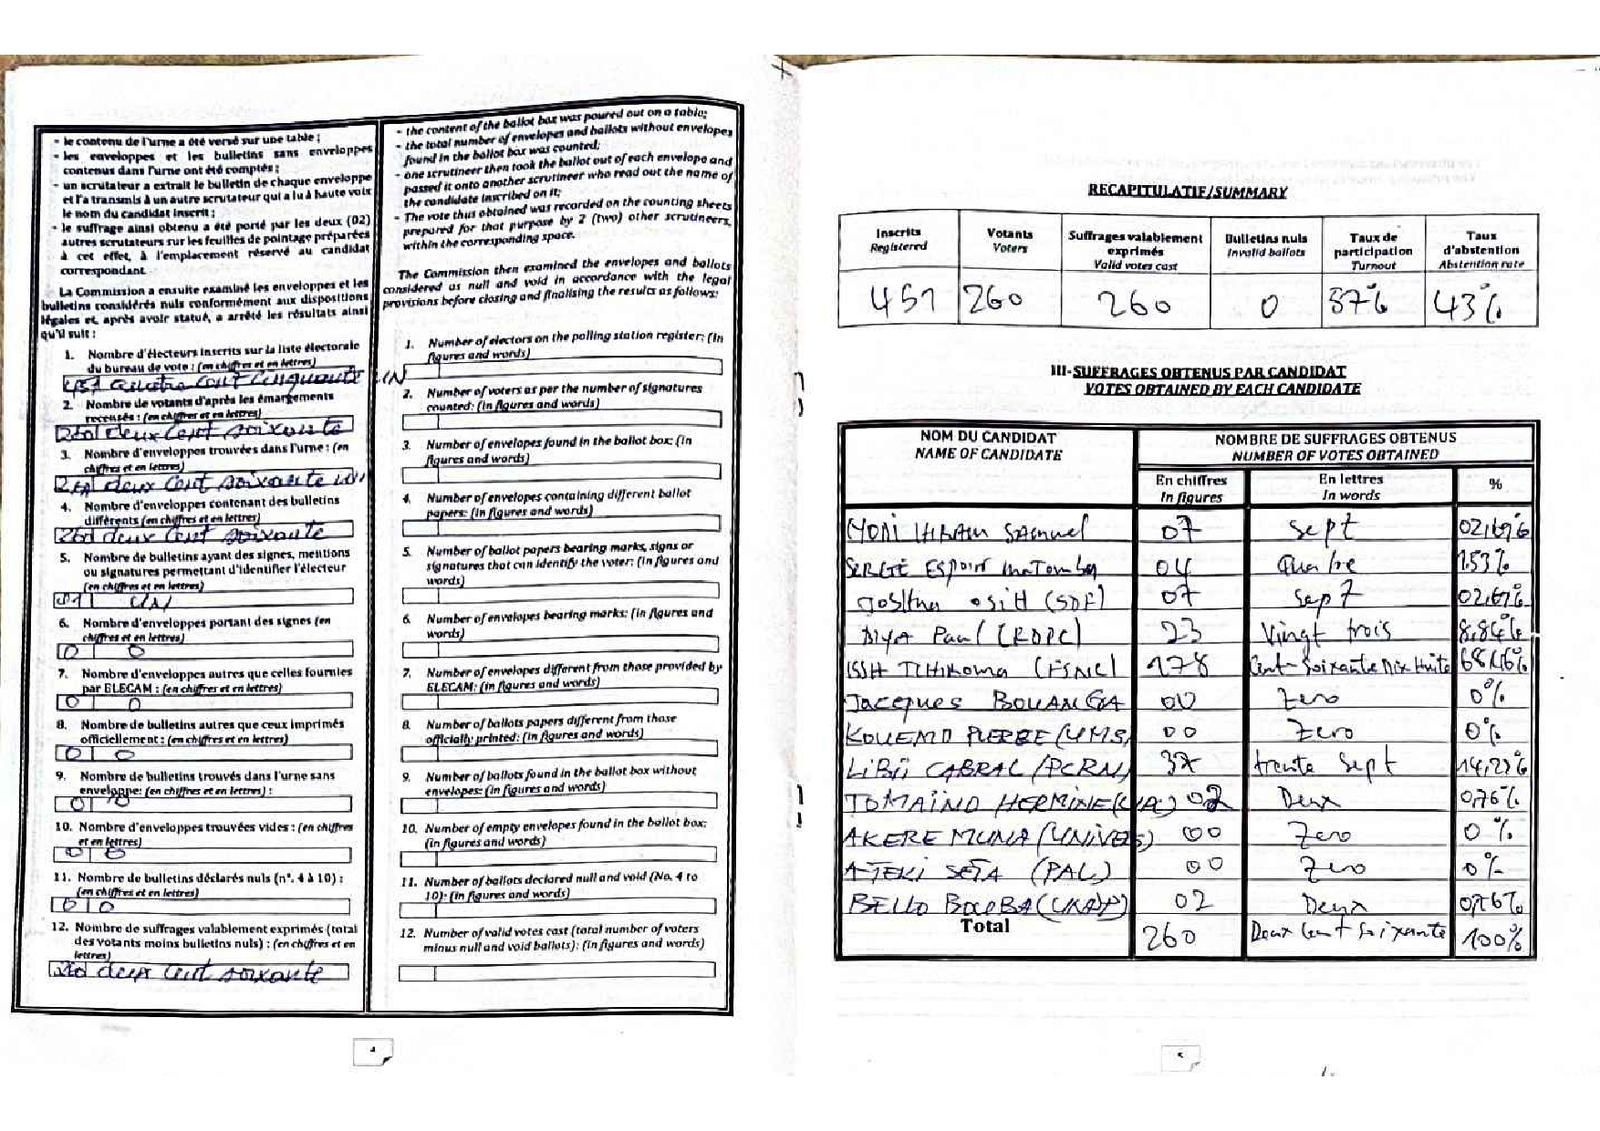 - le contenu de l'urne a été versé sur une table ;
- les enveloppes et les bulletins sans enveloppes
contenus dans l'urne ont été comptés ;
- un scrutateur a extrait le bulletin de chaque enveloppe
et l'a transmis à un autre scrutateur qui a lu à haute voix
le nom du candidat inscrit ;
- le suffrage ainsi obtenu a été porté par les deux (02)
autres scrutateurs sur les feuilles de pointage préparées
à cet effet, à l'emplacement réservé au candidat
correspondant.
La Commission a ensuite examiné les enveloppes et les
bulletins considérés nuls conformément aux dispositions
légales et, après avoir statué, a arrêté les résultats ainsi
qu'il suit :
1. Nombre d'électeurs inscrits sur la liste électorale
du bureau de vote : (en chiffres et en lettres)
451 quatre cent cinquante un
2. Nombre de votants d'après les émargements
recensés : (en chiffres et en lettres)
260 deux cent soixante
3. Nombre d'enveloppes trouvées dans l'urne : (en
chiffres et en lettres)
deux cent soixante
4. Nombre d'enveloppes contenant des bulletins
différents (en chiffres et en lettres)
260 deux cent soixante
5. Nombre de bulletins ayant des signes, mentions
ou signatures permettant d'identifier l'électeur
(en chiffres et en lettres)
01 UN
6. Nombre d'enveloppes portant des signes (en
chiffres et en lettres)
0 0
7. Nombre d'enveloppes autres que celles fournies
par ELECAM : (en chiffres et en lettres)
0 0
8. Nombre de bulletins autres que ceux imprimés
officiellement : (en chiffres et en lettres)
0 0
9. Nombre de bulletins trouvés dans l'urne sans
enveloppe: (en chiffres et en lettres) :
0 0
10. Nombre d'enveloppes trouvées vides : (en chiffres
et en lettres)
0 0
11. Nombre de bulletins déclarés nuls (n°. 4 à 10) :
(en chiffres et en lettres)
0 0
12. Nombre de suffrages valablement exprimés (total
des votants moins bulletins nuls) : (en chiffres et en
lettres)
260 deux cent soixante
- the content of the ballot box was poured out on a table;
- the total number of envelopes and ballots without envelopes
found in the ballot box was counted;
- one scrutineer then took the ballot out of each envelope and
passed it onto another scrutineer who read out the name of
the candidate inscribed on it;
- The vote thus obtained was recorded on the counting sheets
prepared for that purpose by 2 (two) other scrutineers,
within the corresponding space.
The Commission then examined the envelopes and ballots
considered as null and void in accordance with the legal
provisions before closing and finalising the results as follows:
1. Number of electors on the polling station register: (in
figures and words)
2. Number of voters as per the number of signatures
counted: (in figures and words)
3. Number of envelopes found in the ballot box: (in
figures and words)
4. Number of envelopes containing different ballot
papers: (in figures and words)
5. Number of ballot papers bearing marks, signs or
signatures that can identify the voter: (in figures and
words)
6. Number of envelopes bearing marks: (in figures and
words)
7. Number of envelopes different from those provided by
ELECAM: (in figures and words)
8. Number of ballots papers different from those
officially printed: (in figures and words)
9. Number of ballots found in the ballot box without
envelopes: (in figures and words)
10. Number of empty envelopes found in the ballot box:
(in figures and words)
11. Number of ballots declared null and void (No. 4 to
10): (in figures and words)
12. Number of valid votes cast (total number of voters
minus null and void ballots): (in figures and words)
4
RECAPITULATIF/SUMMARY
Inscrits Registered
Votants Voters
Suffrages valablement exprimés Valid votes cast
Bulletins nuls Invalid ballots
Taux de participation Turnout
Taux d'abstention Abstention rate
451 260 260 0 57% 43%
III-SUFFRAGES OBTENUS PAR CANDIDAT
VOTES OBTAINED BY EACH CANDIDATE
NOM DU CANDIDAT NAME OF CANDIDATE
NOMBRE DE SUFFRAGES OBTENUS
NUMBER OF VOTES OBTAINED
En chiffres In figures
En lettres In words
%
HIRAM SAMUEL 07 Sept 02,69%
SERGE ESPOIR Matomba 04 Quatre 1.53%
Joshua OSIH (SDF) 07 Sept 02,69%
BIYA Paul (RDPC) 23 Vingt trois 8,84%
ISSA TCHIROMA (FSNC) 178 Cent-Soixante Dix Huite 68,46%
Jacques BOUANGA 00 Zero 0%
KOUEMO PIERRE (UMS) 00 Zero 0%
LIBII CABRAL (PCRN) 37 trente sept 14,23%
TOMAINO HERMINE 02 Deux 0,76%
AKERE MUNA (UNIVERS) 00 Zero 0%
ATEKI SETA (PAL) 00 Zero 0%
BELLO BOUBA (UNDP) 02 Deux 0,76%
Total 260 Deux Cent Soixante 100%
5